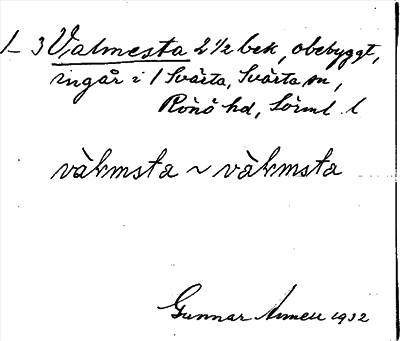 1–3 Valmesta 2 1/2 bek, obebyggt,
ingår i 1 Svärta, Svärta sn,
Rönö hd, Sörml. l
vàḷmsta ~ vàḷmsta
Gunnar 1932